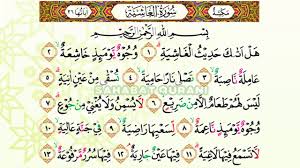 مكية سُورَةُ الْغَاشِيَةِ آياتها ٢٦
بِسْمِ اللَّهِ الرَّحْمَٰنِ الرَّحِيمِ
هَلْ أَتَاكَ حَدِيثُ الْغَاشِيَةِ ١ وُجُوهٌ يَوْمَئِذٍ خَاشِعَةٌ ٢
عَامِلَةٌ نَاصِبَةٌ ٣ تَصْلَىٰ نَارًا حَامِيَةً ٤ تُسْقَىٰ مِنْ عَيْنٍ آنِيَةٍ ٥
SAHABAT QURANI
لَيْسَ لَهُمْ طَعَامٌ إِلَّا مِنْ ضَرِيعٍ ٦ لَا يُسْمِنُ وَلَا يُغْنِي مِنْ جُوعٍ ٧
وُجُوهٌ يَوْمَئِذٍ نَاعِمَةٌ ٨ لِسَعْيِهَا رَاضِيَةٌ ٩ فِي جَنَّةٍ عَالِيَةٍ ١٠
لَا تَسْمَعُ فِيهَا لَاغِيَةً ١١ فِيهَا عَيْنٌ جَارِيَةٌ ١٢ فِيهَا سُرُرٌ مَرْفُوعَةٌ ١٣